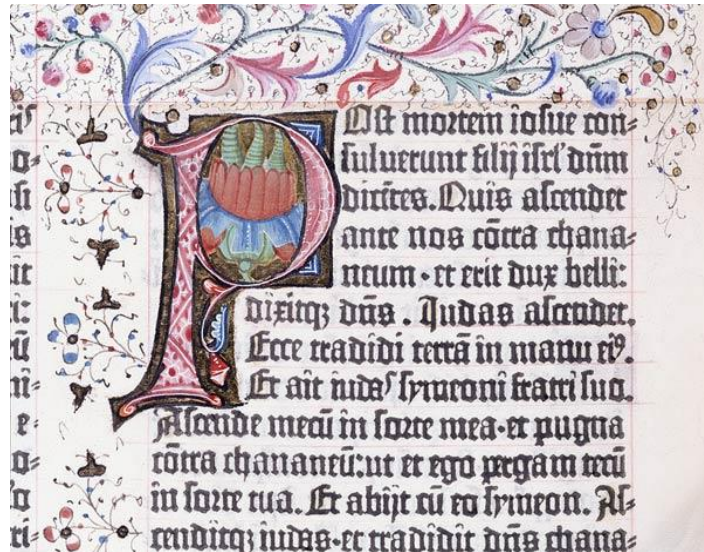 Post mortem iosue con=
suluerunt filij isrl' dn̄m
dicētes. Quis ascendet
ante nos cōtra chana=
neum · et erit dux belli:
dixitqꝫ dn̄s. Iudas ascendet.
Ecce tradidi terrā in manu eiꝰ.
Et ait iudas symeoni fratri suo.
Ascende mecū in sorte mea · et pugna
cōtra chananeū: ut et ego pergam tecū
in sorte tua. Et abijt cū eo symeon. As=
cenditqꝫ iudas · et tradidit dn̄s chana=